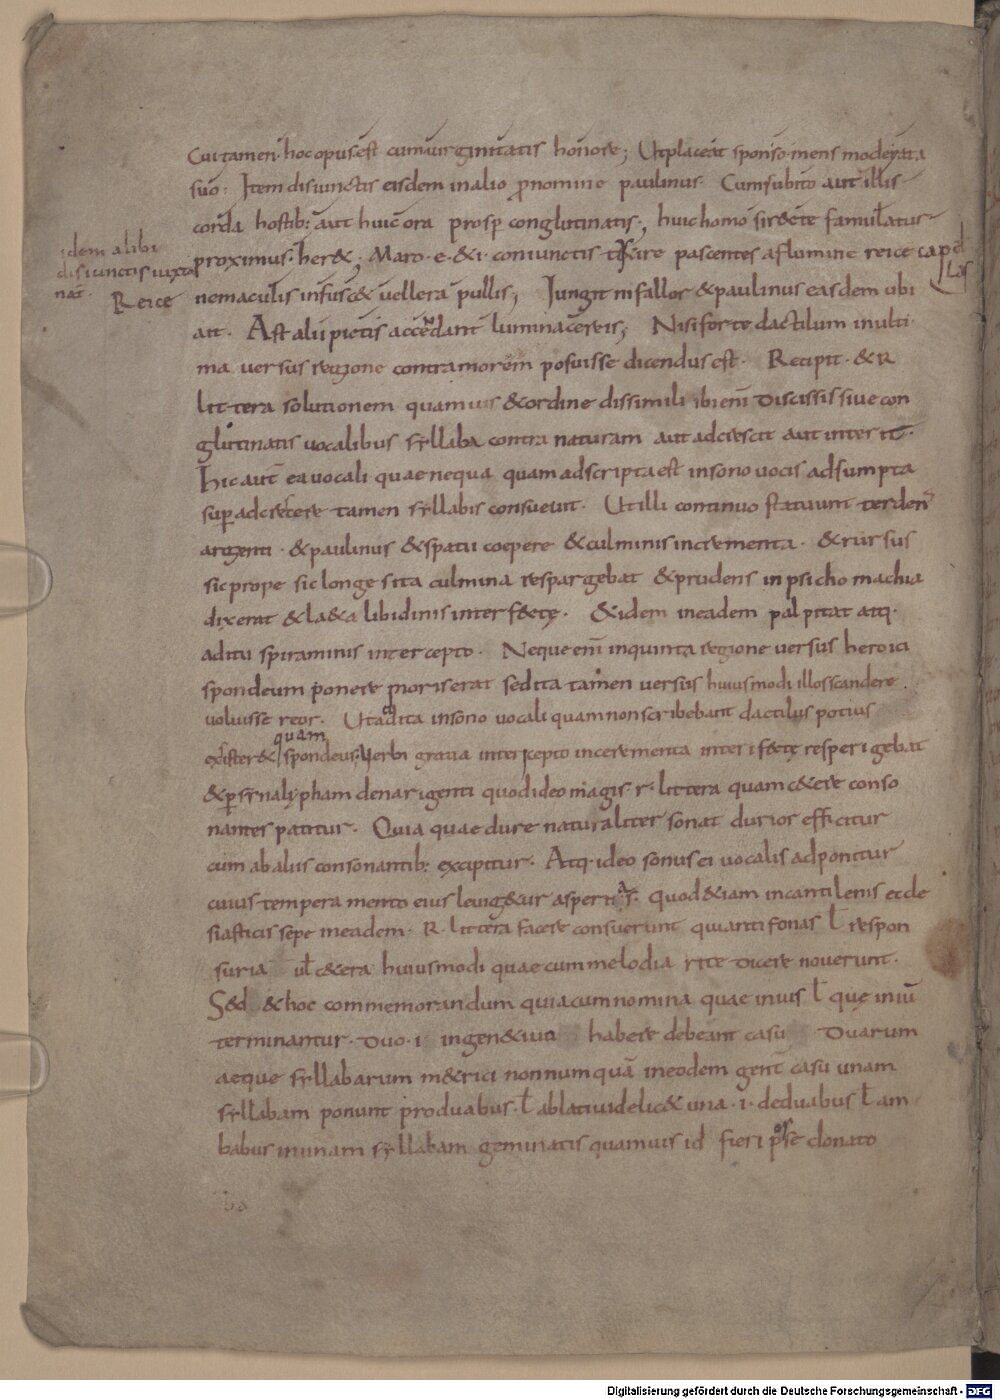 Cui tamen hoc opus est cum uirginitatis honore; Ut placeat sponso mens moderata
suo: Item disiunctis eisdem in alio pronomine paulinus. Cum subito aut illis
corda hostib: aut huic ora prosp conglutinatis, huic homo sir&cte famulatur
proximus her&; Maro. e. & i. coniunctis tityre pascentes a flumine reice cap
llas
idem alibi
disiunctis iuxta
nat. Reice
ne maculis infusc& uellera pullis; Jungit ni fallor & paulinus easdem ubi
ait. Ast alii pictis accendant lumina cereis; Nisi forte dactilum in ulti
ma uersus regione contra morem posuisse dicendus est. Recipit. & R
littera solutionem quamuis & ordine dissimili ibi enī discissis siue con
glutinatis uocalibus syllaba contra naturam aut adcrescit aut interit.
Hic aut̄ ea uocali quae nequaquam adscripta est in sono uocis adsumpta
sup adcrescere tamen syllabis consueuit. Ut illi continuo statuunt ter den
argenti. & paulinus & spatii coepere & culminis incrementa. & rursus
sic prope sic longe sita culmina respargebat & prudens in psichomachia
dixerat & la&a libidinis interfectę. & idem in eadem palpitat atq.
aditu spiraminis intercepto. Neque enī in quinta regione uersus heroici
spondeum ponere moris erat sed ita tamen uersus huiusmodi illos scandere
uoluisse reor. Ut addita in sono uocali quam non scribebant dactilus potius
quam
existeret spondeus, uerbi gratia intericepto incerementa interifectę resperigebat
& p synalypham denarigenti quod ideo magis r. littera quam c&ere conso
nantes patitur. Quia quae dure naturaliter sonat durior efficitur
cum ab aliis consonantib: excipitur. Atq. ideo sonus ei uocalis adponitur
cuius temperamento eius leuig&ur asperitas. quod &iam in cantilenis eccle
siasticis sepe in eadem. R. littera facere consuerunt qui antifonas ł respon
suria ul c&era huiusmodi quae cum melodia rite dicere nouerunt.
S&d & hoc commemorandum quia cum nomina quae in ius ł quę in iū
terminantur. duo. i in gen&iuo habere debeant casu Duarum
aeque syllabarum m&rici nonnumquā in eodem gent̄ casu unam
syllabam ponunt pro duabus. ł ablati uidelic& una. i. de duabus ł am
babus in unam syllabam geminatis quamuis id fieri posse donato